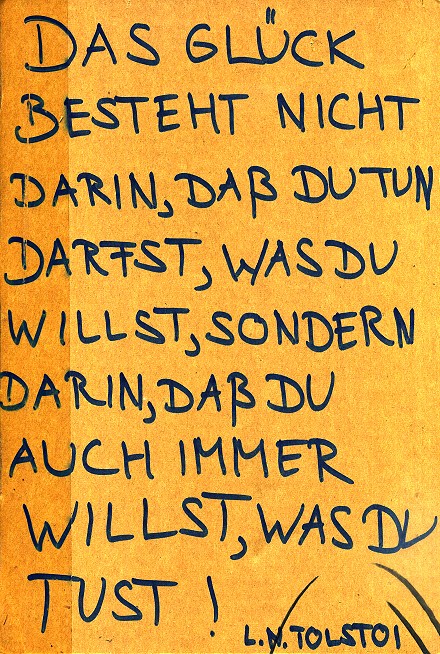 DAS GLÜCK
BESTEHT NICHT
DARIN, DAß DU TUN
DARFST, WAS DU
WILLST, SONDERN
DARIN, DAß DU
AUCH IMMER
WILLST, WAS DU
TUST !
L.N.TOLSTOI